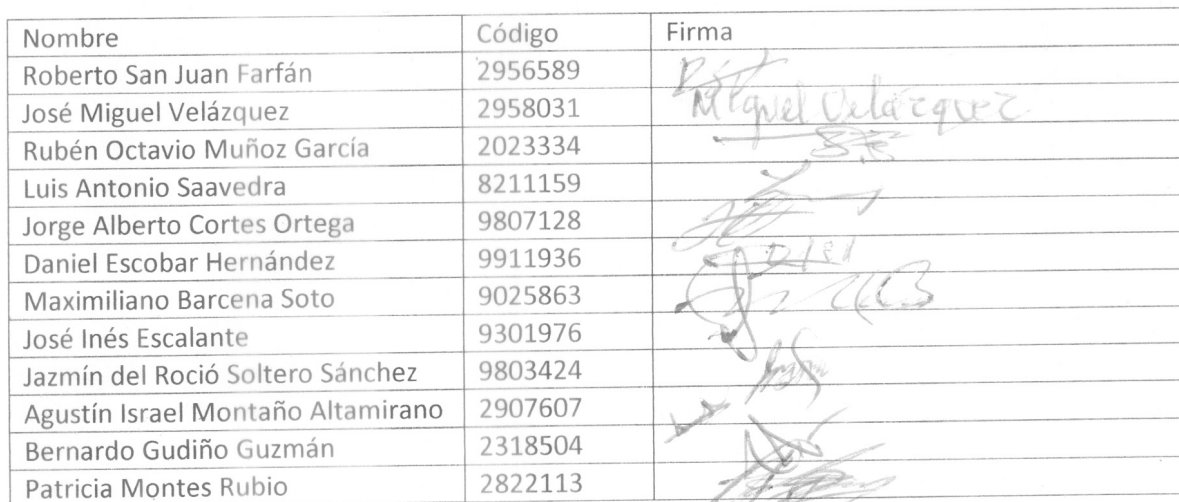 Nombre Código Firma
Roberto San Juan Farfán 2956589
José Miguel Velázquez 2958031 Miguel Velázquez
Rubén Octavio Muñoz García 2023334
Luis Antonio Saavedra 8211159
Jorge Alberto Cortes Ortega 9807128
Daniel Escobar Hernández 9911936
Maximiliano Barcena Soto 9025863
José Inés Escalante 9301976
Jazmín del Roció Soltero Sánchez 9803424
Agustín Israel Montaño Altamirano 2907607
Bernardo Gudiño Guzmán 2318504
Patricia Montes Rubio 2822113